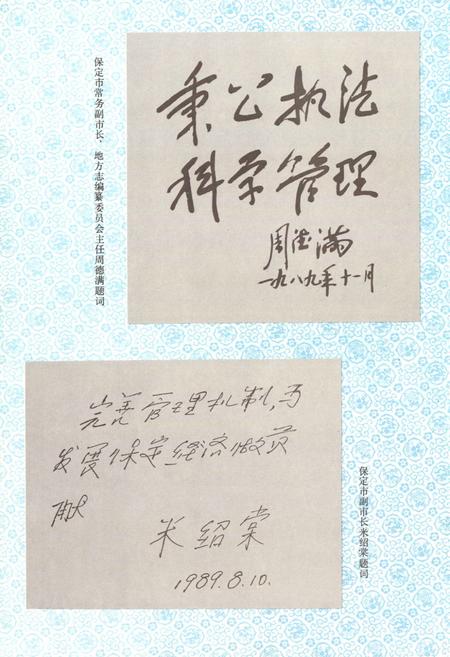 保定市常务副市长、地方志编纂委员会主任周德满题词
秉公执法
科学管理
周德满
一九八九年十一月
完善管理机制,为
发展保定经济做贡
献
米绍棠
1989.8.10.
保定市副市长米绍棠题词